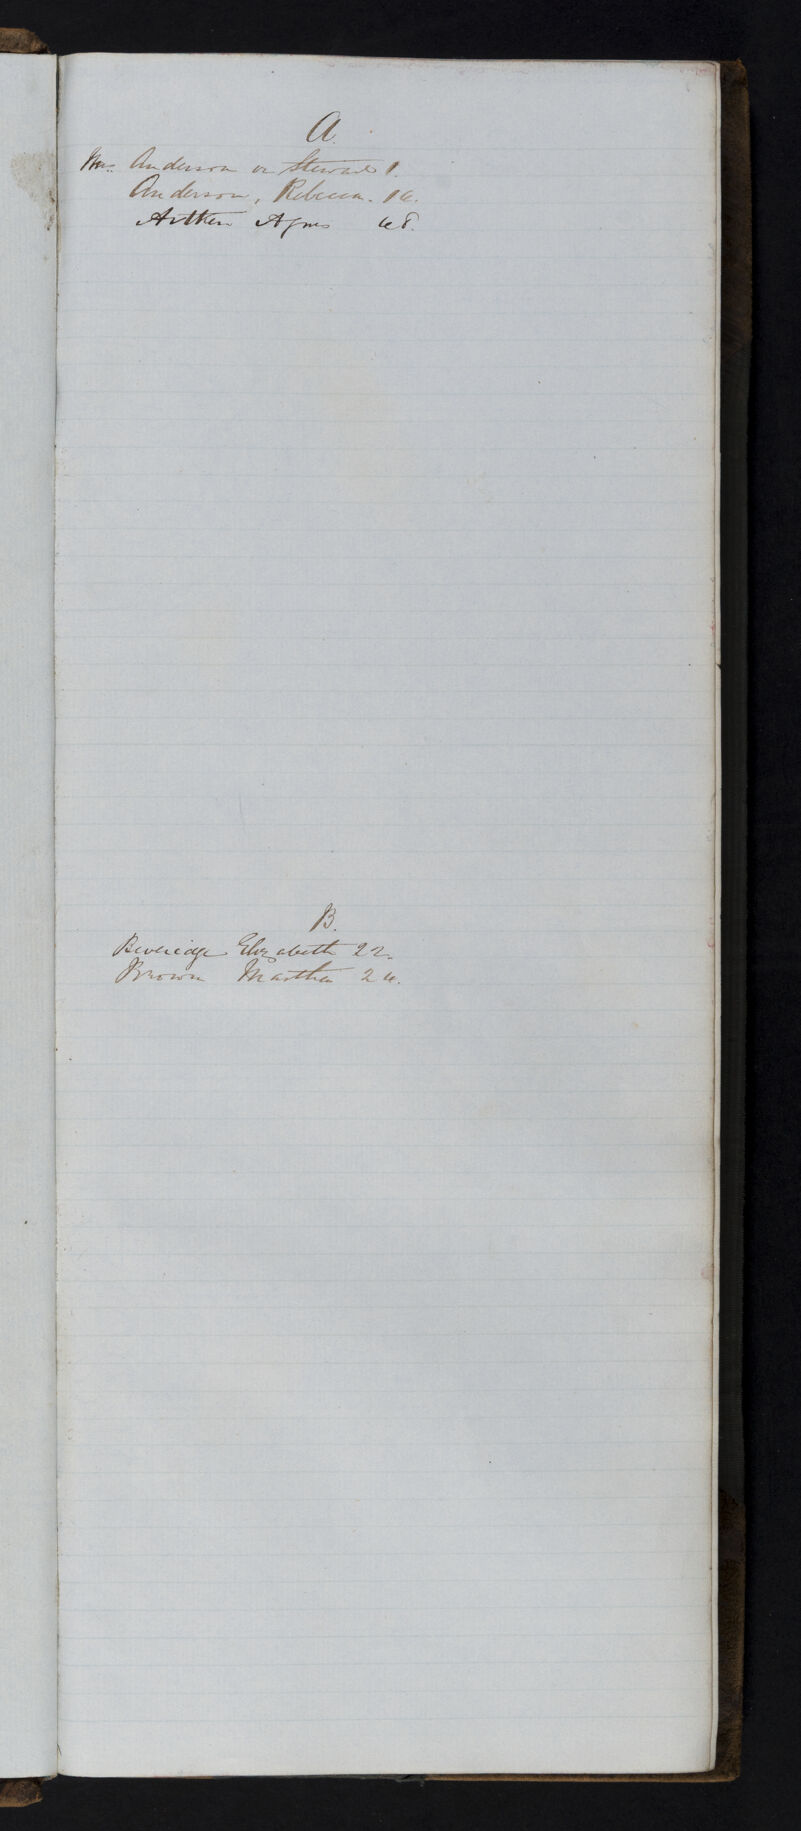 A.
Mrs. Anderson or Steward 1.
Anderson, Rebecca. 16.
Aitken Agnes 68.
B.
Beveridge Elizabeth 22.
Brown Martha 26.